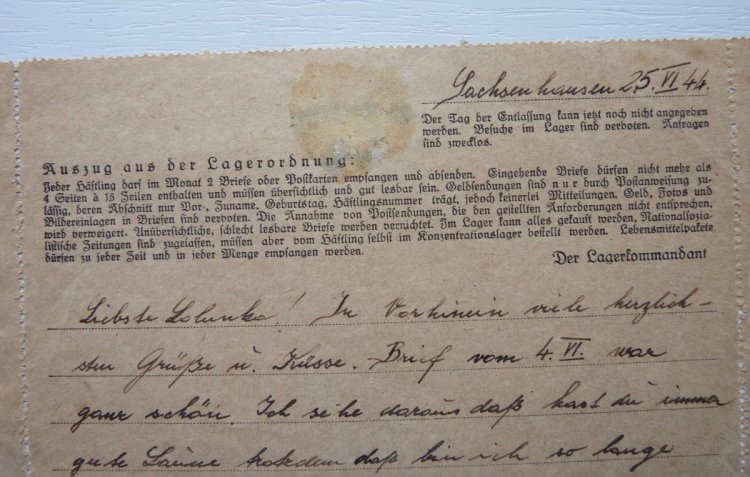 Sachsenhausen 25.VI 44.
Der Tag der Entlassung kann jetzt noch nicht angegeben
werden. Besuche im Lager sind verboten. Anfragen
sind zwecklos.
Auszug aus der Lagerordnung:
Jeder Häftling darf im Monat 2 Briefe oder Postkarten empfangen und absenden. Eingehende Briefe dürfen nicht mehr als
4 Seiten à 15 Zeilen enthalten und müssen übersichtlich und gut lesbar sein. Geldsendungen sind nur durch Postanweisung zu-
lässig, deren Abschnitt nur Vor-, Zuname, Geburtstag, Häftlingsnummer trägt, jedoch keinerlei Mitteilungen. Geld, Fotos und
Bildereinlagen in Briefen sind verboten. Die Annahme von Postsendungen, die den gestellten Anforderungen nicht entsprechen,
wird verweigert. Unübersichtliche, schlecht lesbare Briefe werden vernichtet. Im Lager kann alles gekauft werden. Nationalsozia-
listische Zeitungen sind zugelassen, müssen aber vom Häftling selbst im Konzentrationslager bestellt werden. Lebensmittelpakete
dürfen zu jeder Zeit und in jeder Menge empfangen werden.
Der Lagerkommandant
Liebste Lolunka! In Vorhinein viele herzlich-
sten Grüße u. Küsse. Brief vom 4. VI. war
ganz schön. Ich sehe daraus daß hast du immer
gute Laune trotzdem daß bin ich so lange